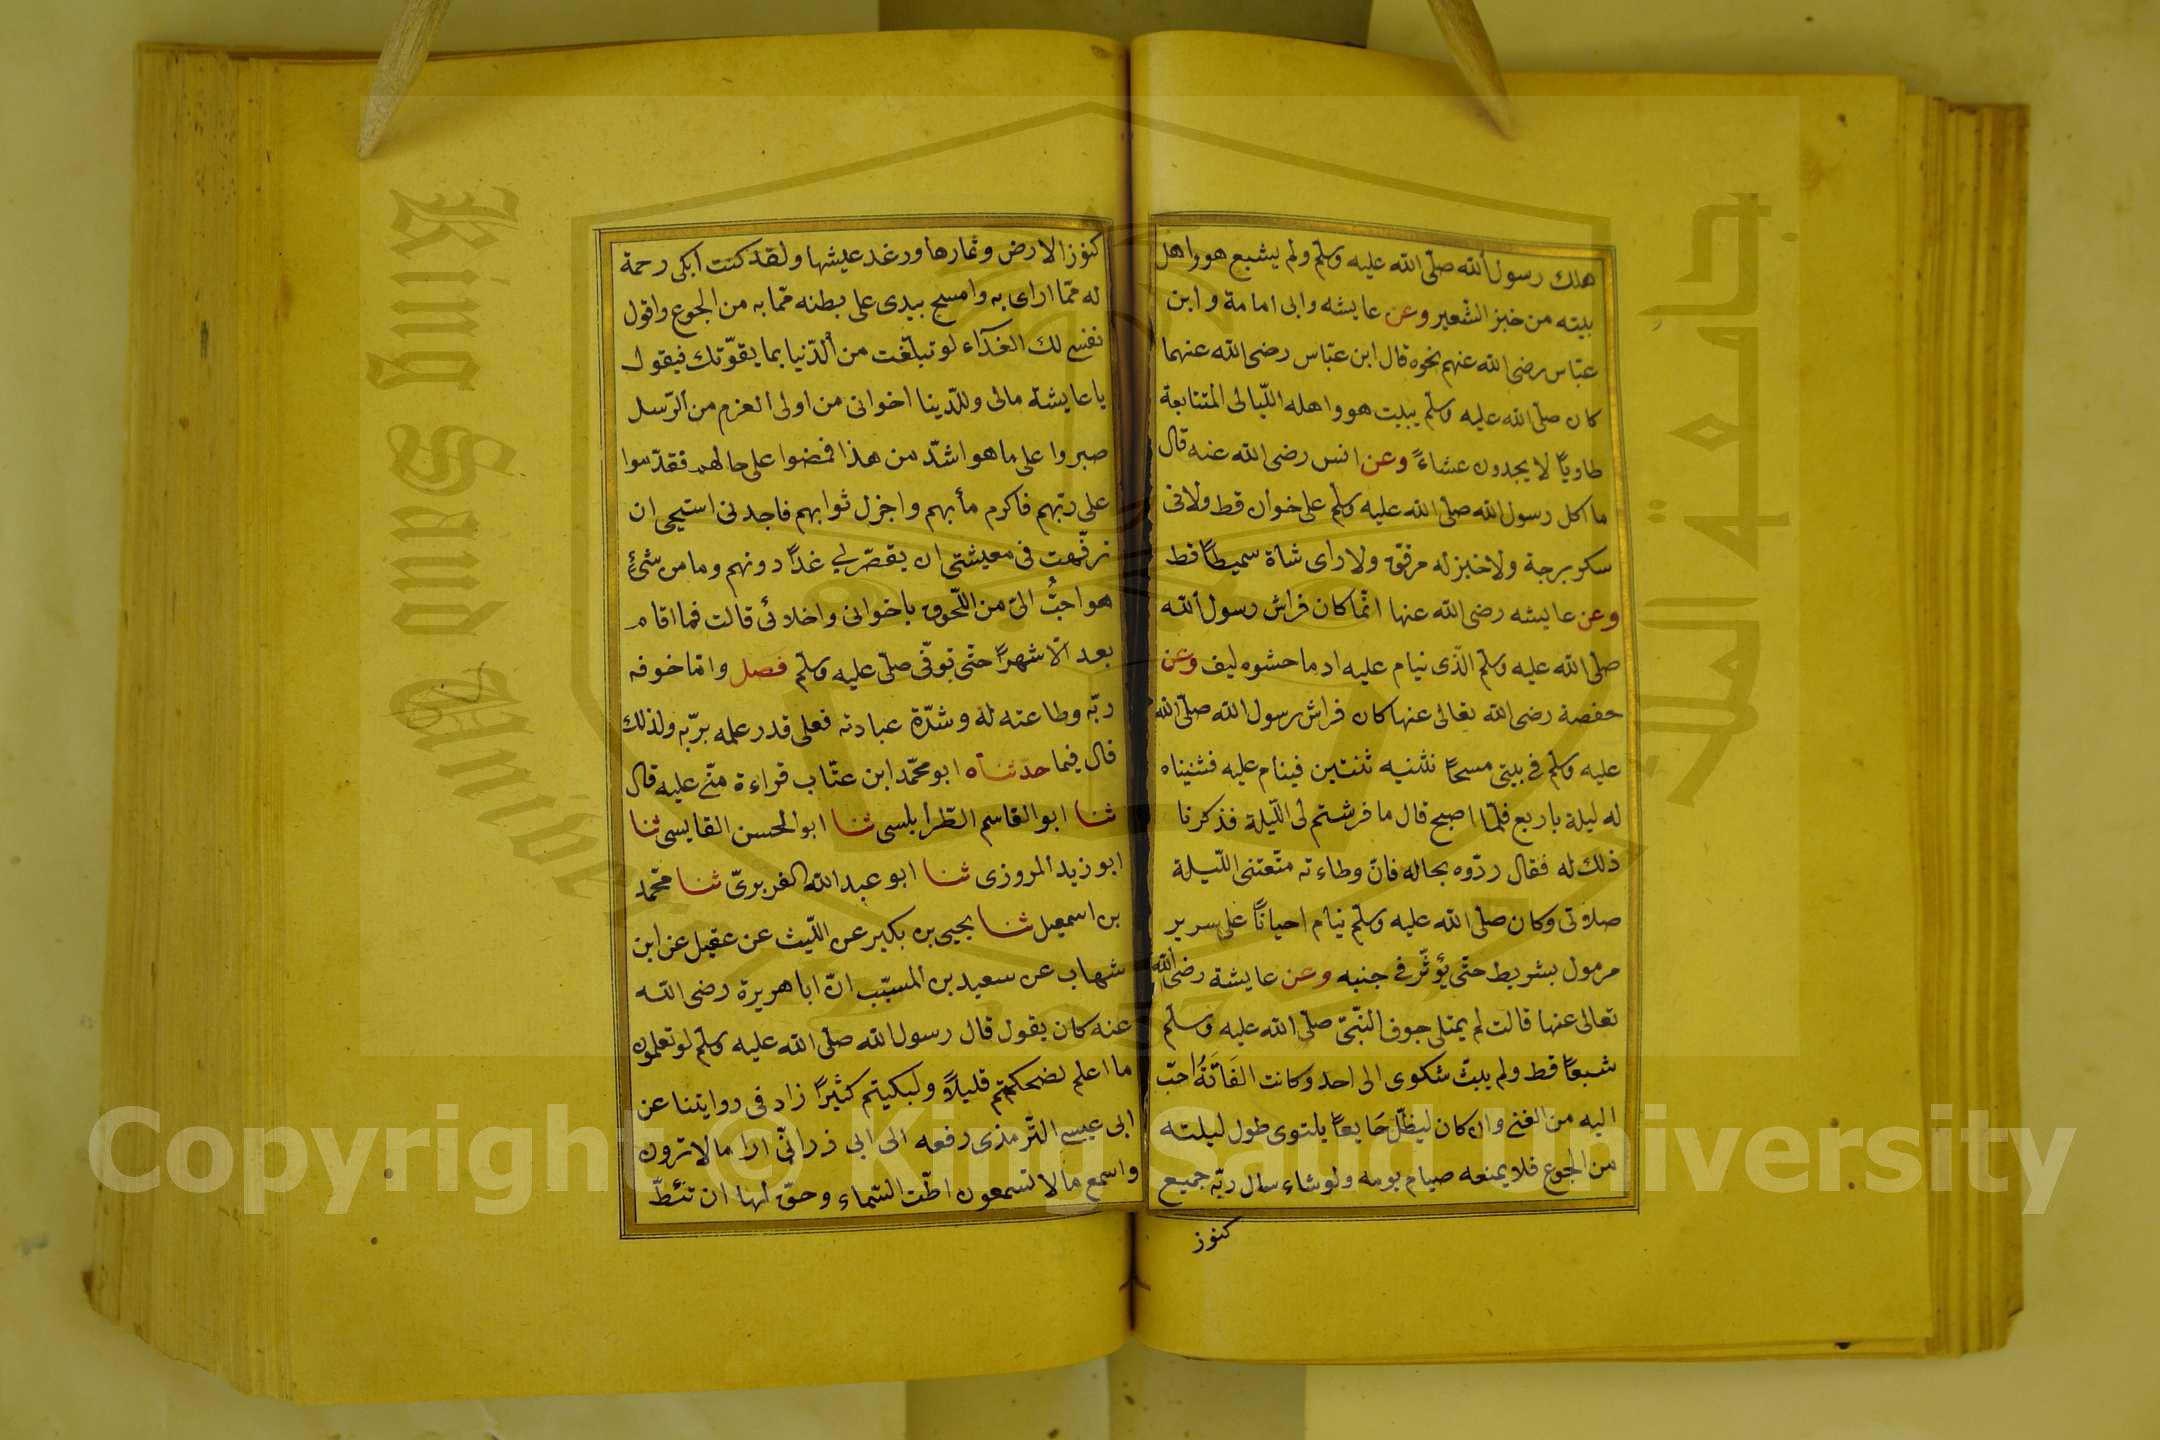 هلك رسول الله صلّى الله عليه وسلّم ولم يشبع هو واهل
بيته من خبز الشّعير وعن عايشه وابى امامة وابن
عبّاس رضى الله عنهم نحوه قال ابن عبّاس رضى الله عنهما
كان صلّى الله عليه وسلّم يبيت هو واهله اللّيالى المتتابعة
طاويًا لا يجدون عشاءً وعن انس رضى الله عنه قال
ما اكل رسول الله صلّى الله عليه وسلّم على خوان قط ولا فى
سكوبرجة ولا خبز له مرقق ولا راى شاة سميطًا قط
وعن عايشه رضى الله عنها انّما كان فراش رسول الله
صلّى الله عليه وسلّم الّذى ينام عليه ادما حشوه ليف وعن
حفصة رضى الله تعالى عنها كان فراش رسول الله صلّى الله
عليه وسلّم فى بيتى مسحًا نثنيه ثنتين فينام عليه فثنيناه
له ليلة باربع فلمّا اصبح قال ما فرشتم لى اللّيلة فذكرنا
ذلك له فقال ردّوه بحاله فانّ وطاءته منّعتنى اللّيلة
صلاتى وكان صلّى الله عليه وسلّم ينام احيانًا على سرير
مرمول بشريط حتّى يؤثّر فى جنبه وعن عايشة رضى الله
تعالى عنها قالت لم يمتلى جوف النّبىّ صلّى الله عليه وسلّم
شبعًا قط ولم يبثّ شكوى الى احد وكانت الفاقة احبّ
اليه من الغنى وان كان ليظلّ جايعًا يلتوى طول ليلته
من الجوع فلا يمنعه صيام يومه ولو شاء سال ربّه جميع
كنوز
كنوز الارض وثمارها ورغد عيشها ولقد كنت ابكى رحمة
له ممّا ارى به وامسح بيدى على بطنه ممّا به من الجوع واقول
نفسى لك الفداء لو تبلّغت من الدّنيا بما يقوّتك فيقول
يا عايشة مالى وللدّينا اخوانى من اولى العزم من الرّسل
صبروا على ما هو اشدّ من هذا فمضوا على حالهم فقدموا
على ربّهم فاكرم مأبهم واجزل ثوابهم فاجدنى استحيى ان
ترفّهت فى معيشتى ان يقصّر لى غدًا دونهم وما من شئ
هو احبّ الىّ من اللّحوق باخوانى واخلائى قالت فما اقام
بعد الّا شهرًا حتّى توفّى صلّى عليه وسلّم فصل وامّا خوفه
ربّه وطاعته له وشدّة عبادته فعلى قدر علمه بربّه ولذلك
قال فيما حدّثناه ابو محمّد ابن عتّاب قراءة منّى عليه قال
ثنا ابو القاسم الطّرابلسى ثنا ابو الحسن القابسى ثنا
ابو زيد المروزى ثنا ابو عبد الله الفربرىّ ثنا محمّد
بن اسمعيل ثنا يحيى بن بكير عن اللّيث عن عقيل عن ابن
شهاب عن سعيد بن المسيّب انّ ابا هريرة رضى الله
عنه كان يقول قال رسول الله صلّى الله عليه وسلّم لو تعلمون
ما اعلم لضحكتم قليلًا ولبكيتم كثيرًا زاد فى روايتنا عن
ابى عيسى التّرمذى رفعه الى ابى ذر انّى ارا ما لا ترون
واسمع ما لا تسمعون اطّت السّماء وحقّ لها ان تئطّ
King Saud University
جامعة الملك
Copyright © King Saud University